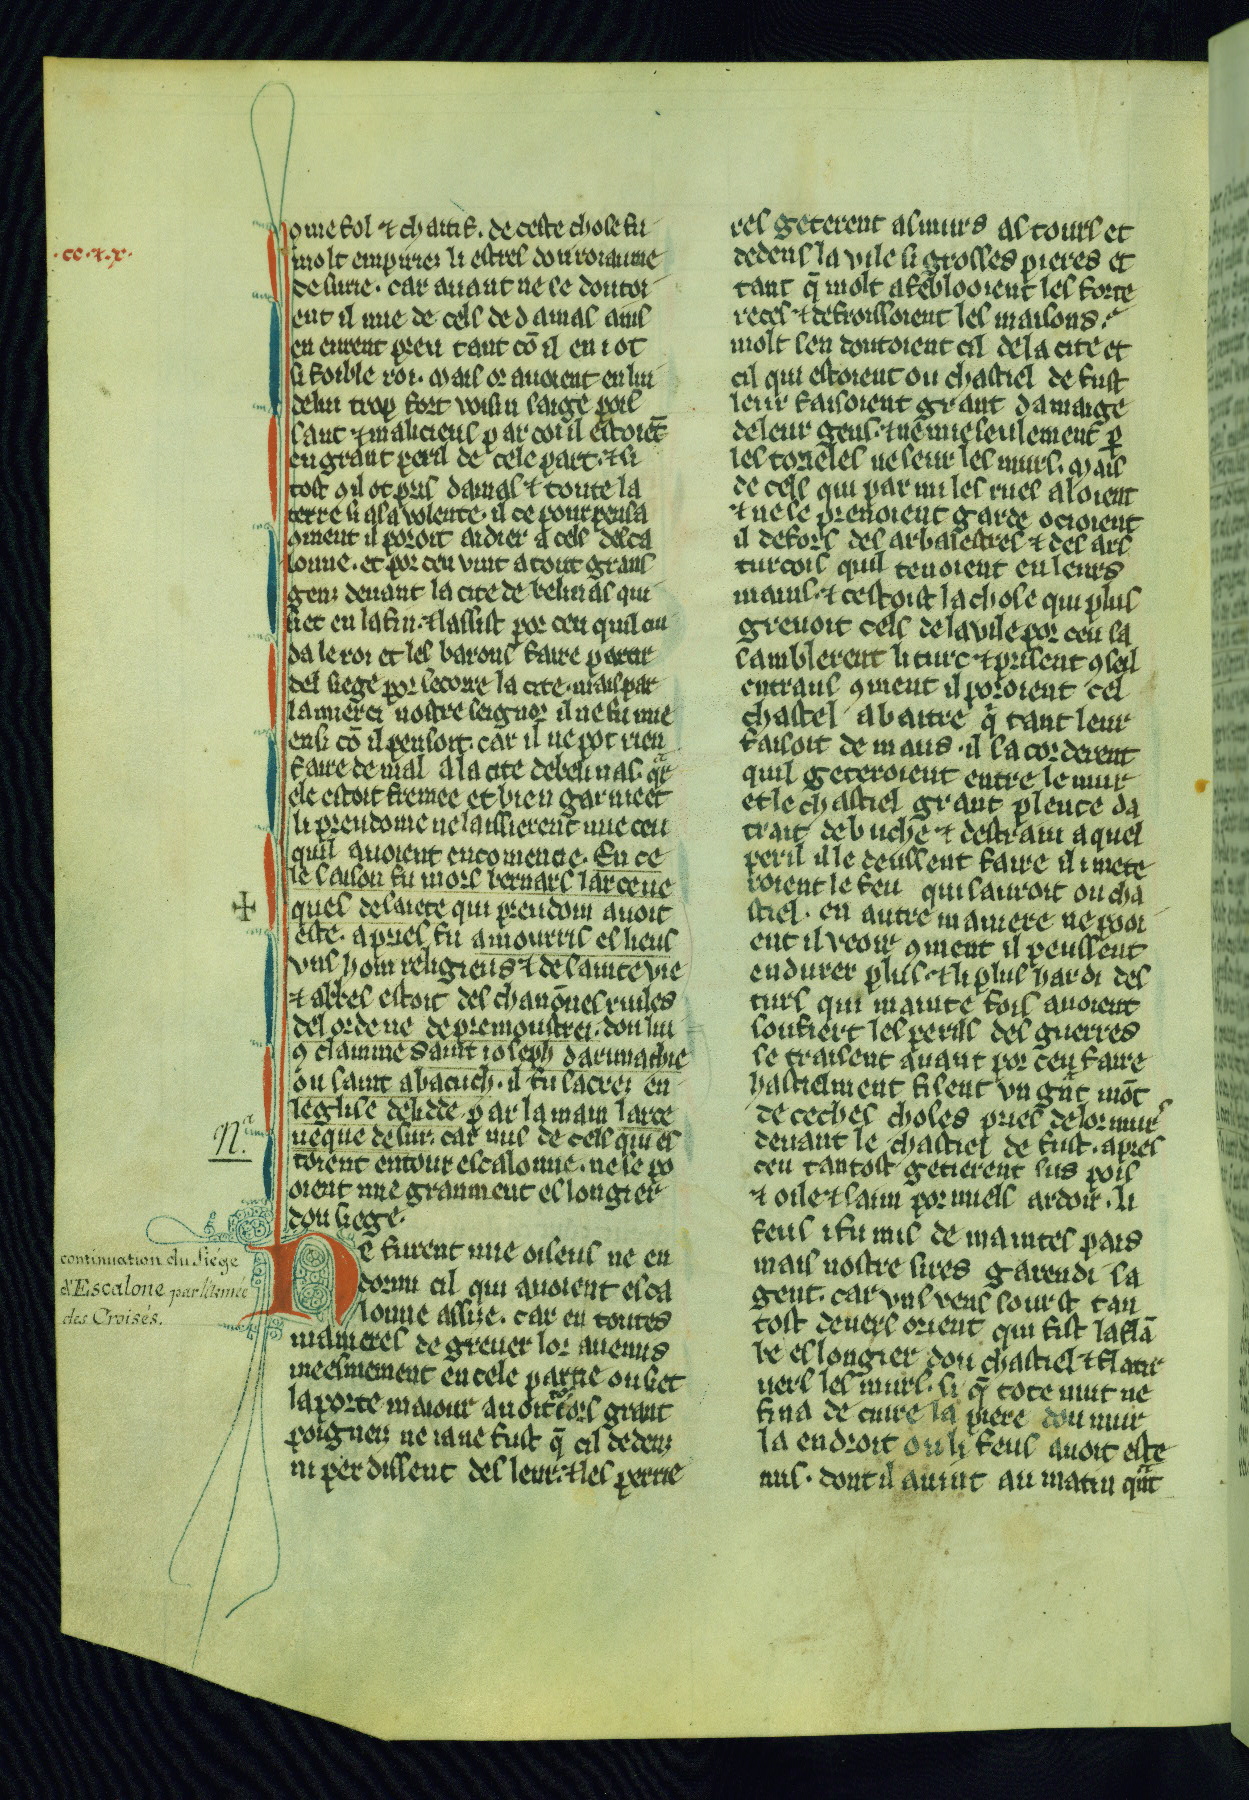 .cc.x.x.
ome fol ⁊ chaitif. de ceste chose fu
molt empiries li estres dou roiaume
de surie. car auant ne se doutoi
ent il mie de cels de damas ains
en eurent preu tant cõ il en i ot
si foible roi. mais or auoient en lui
delui trop fort voisin saige pois
sant ⁊ malicieus par coi il estoiẽt
en grant peril de cele part. ⁊ si
tost ꝯ il ot pris damas ⁊ toute la
terre si a sa volente. il ce pourpensa
ꝯment il poroit aidier a cels desca
lonne. et por ceu vint a tout grans
gens deuant la cite de belinas qui
siet en la fin. ⁊ lassist por ceu quil cui
da le roi et les barons faire partir
del siege por secorre la cite. mais par
la merci nostre seignor il ne fu mie
ensi cõ il pensoit. car il ne pot rien
faire de mal a la cite de belinas. qᷓr
ele estoit fremee et bien garnie et
li preudome ne laissierent mie ceu
quil auoient encomencie. En ce
le saison fu mors bernars larceue
ques de saiete qui preudom auoit
este. apres fu amourris esleus
vns hom religieus ⁊ de sainte vie
⁊ abbes estoit des chanõnes riules
del ordene de premoustrei. dou liu
ꝯ clamme saint ioseph darimathie
ou saint abacuch. il fu sacrei en
leglise de lidde par la main larce
ueque de sur. car nus de cels qui es
toient entour escalonne. ne se po
oient mie granment eslongier
dou siege.
Nᵃ.
continuation du siége
d'Escalone par l'armée
des Croisés.
Ne furent mie oiseus ne en
dormi cil qui auoient esca
lonne assize. car en toutes
manieres de greuer lor anemis
meesmement en cele partie ou siet
la porte maiour auoit tos iors grant
poigneis ne ia ne fust q̃ cil dedens
ni perdissent des leur. ⁊ les perrie
res geterent as murs as tours et
dedens la vile si grosses pieres et
tant q̃ molt afeblooient les forte
reces ⁊ defroissoient les maisons.
molt sen doutoient cil de la cite et
cil qui estoient ou chastiel de fust
leur faisoient grant damaige
de leur gens. ⁊ nẽ mie seulement ꝑ
les torieles ne seur les murs. mais
de cels qui parmi les rues aloient
⁊ ne se prenoient garde ocioient
il defors des arbalestres ⁊ des ars
turcois quil tenoient en leurs
mains. ⁊ cestoist la chose qui plus
greuoit cels de la vile por ceu sa
samblerent li turc ⁊ prisent ꝯseil
entraus ꝯment il poroient cel
chastel abattre q̃ tant leur
faisoit de maus. il sacorderent
quil geteroient entre le mur
et le chastiel grant plente da
trait de buche ⁊ destrain a quel
peril il le deussent faire il i mete
roient le feu qui sauroit ou cha
stiel. en autre maniere ne pooi
ent il veoir ꝯment il peussent
endurer plus. ⁊ li plus hardi des
turs qui mainte fois auoient
soufiert les perils des guerres
se traisent auant por ceu faire
hastiement fisent vn gᷓnt mõt
de ceches choses pres de lor murs
deuant le chastiel de fust. apres
ceu tantost getierent sus pois
⁊ oile ⁊ saim por miels ardoir. li
feus i fu mis de maintes pars
mais nostre sires garendi sa
gent. car vns vens sourst tan
tost deuers orient qui fist la flã
be eslongier dou chastiel ⁊ flatir
uers les murs. si q̃ tote nuit ne
fina de cuire la piere dou mur
la endroit ou li feus auoit este
mis. dont il auint au matin qᷓnt